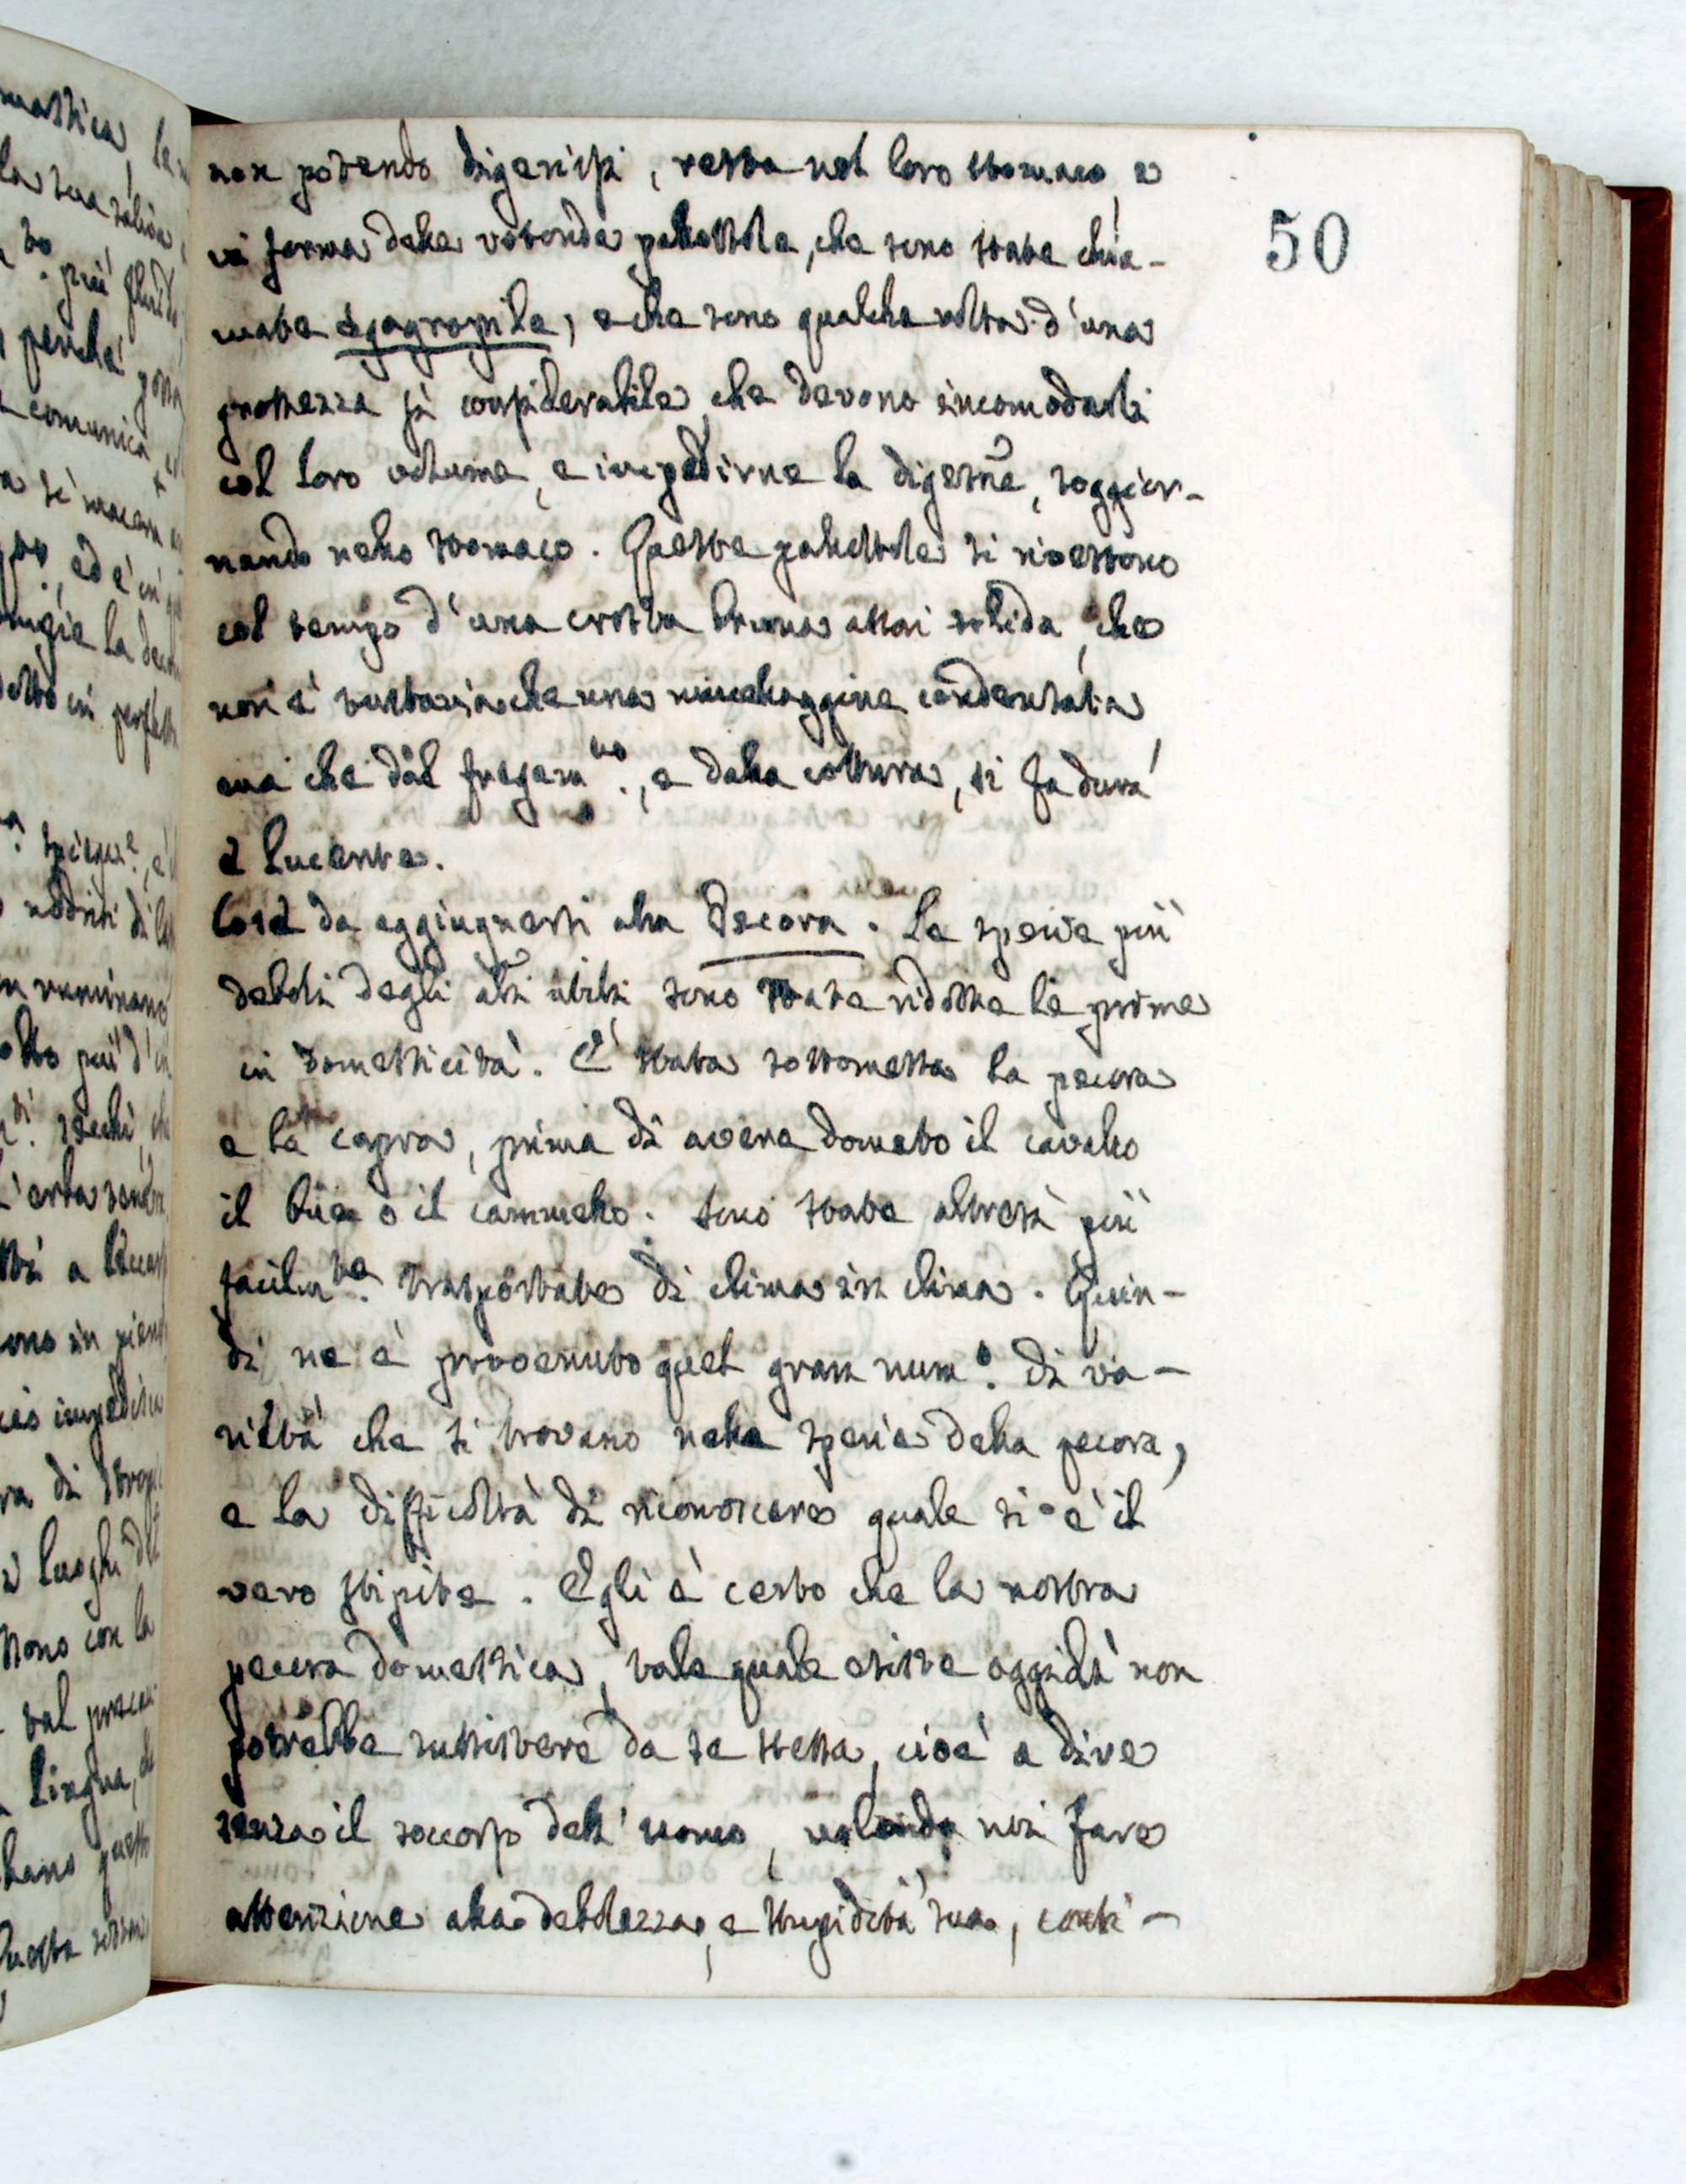 50
non potendo digerirsi, resta nel loro stomaco, e
vi forma delle rotonde pallottole, che sono state chia-
mate egagropile, e che sono qualche volta d'una
grossezza sì considerabile, che devono incomodarli
col loro volume, e impedirne la digestne, soggior-
nando nello stomaco. Queste pallottole si rivestono
col tempo d'una crosta bruna assai solida, che
non è tuttavia che una mucellaggine condensata,
ma che dal fregamto., e dalla cottura, si fa dura
e lucente.
Cose da aggiugnersi alla Pecora. Le specie più
deboli degli ali utili sono state ridotte le prime
in domesticità. È stata sottomessa la pecora
e la capra, prima di avere domato il cavallo
il bue o il cammello. Sono state altresì più
facilmte. trasportate di clima in clima. Quin-
di ne è provenuto quel gran numo. di va-
rietà che si trovano nella specie della pecora,
e la difficoltà di riconoscere quale si è il
vero stipite. Egli è certo che la nostra
pecora domestica, tale quale esiste oggidì non
potrebbe sussistere da se stessa, cioè a dire
senza il soccorso dell'uomo, volendo noi fare
attenzione alla debolezza, e stupidità sua,